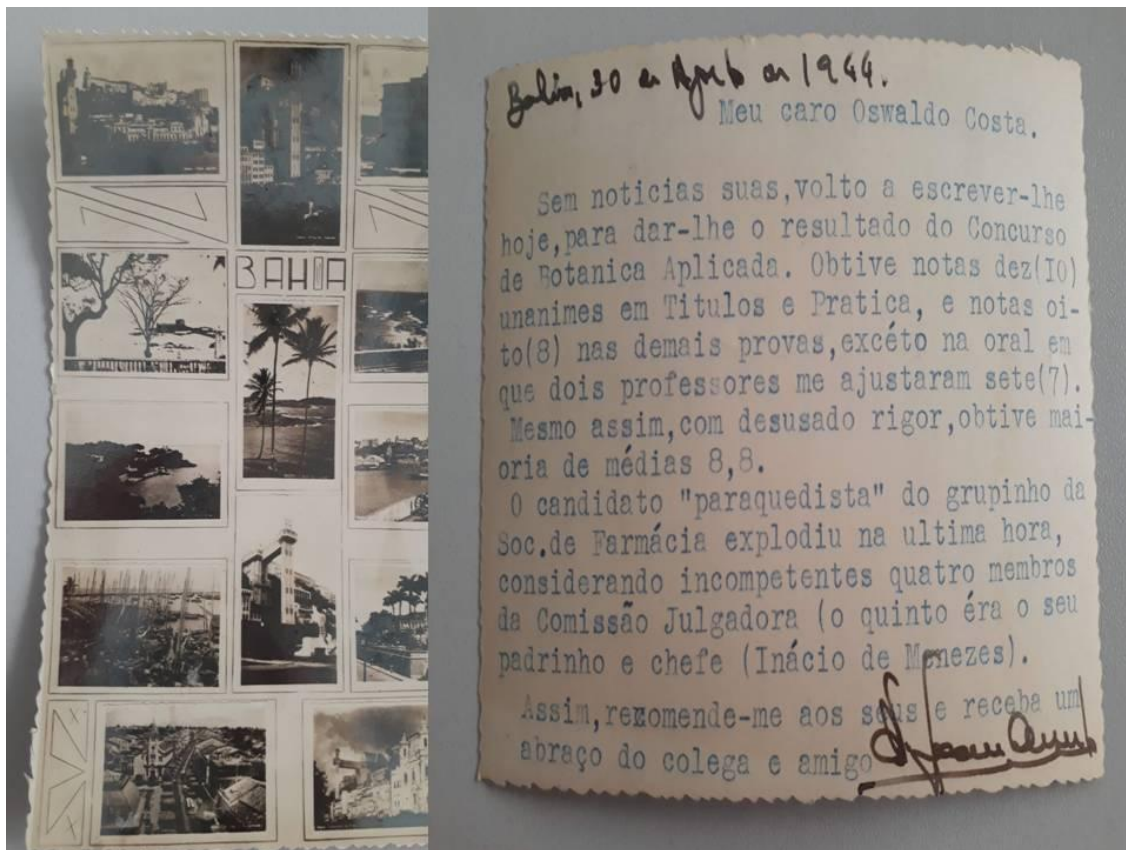 BAHIA
Bahia, 30 de Agosto de 1944.
Meu caro Oswaldo Costa.
Sem noticias suas,volto a escrever-lhe
hoje,para dar-lhe o resultado do Concurso
de Botanica Aplicada. Obtive notas dez(I0)
unanimes em Titulos e Pratica, e notas oi-
to(8) nas demais provas,excéto na oral em
que dois professores me ajustaram sete(7).
Mesmo assim,com desusado rigor,obtive mai-
oria de médias 8,8.
O candidato "paraquedista" do grupinho da
Soc.de Farmácia explodiu na ultima hora,
considerando incompetentes quatro membros
da Comissão Julgadora (o quinto éra o seu
padrinho e chefe (Inácio de Menezes).
Assim,recomende-me aos seus e receba um
abraço do colega e amigo